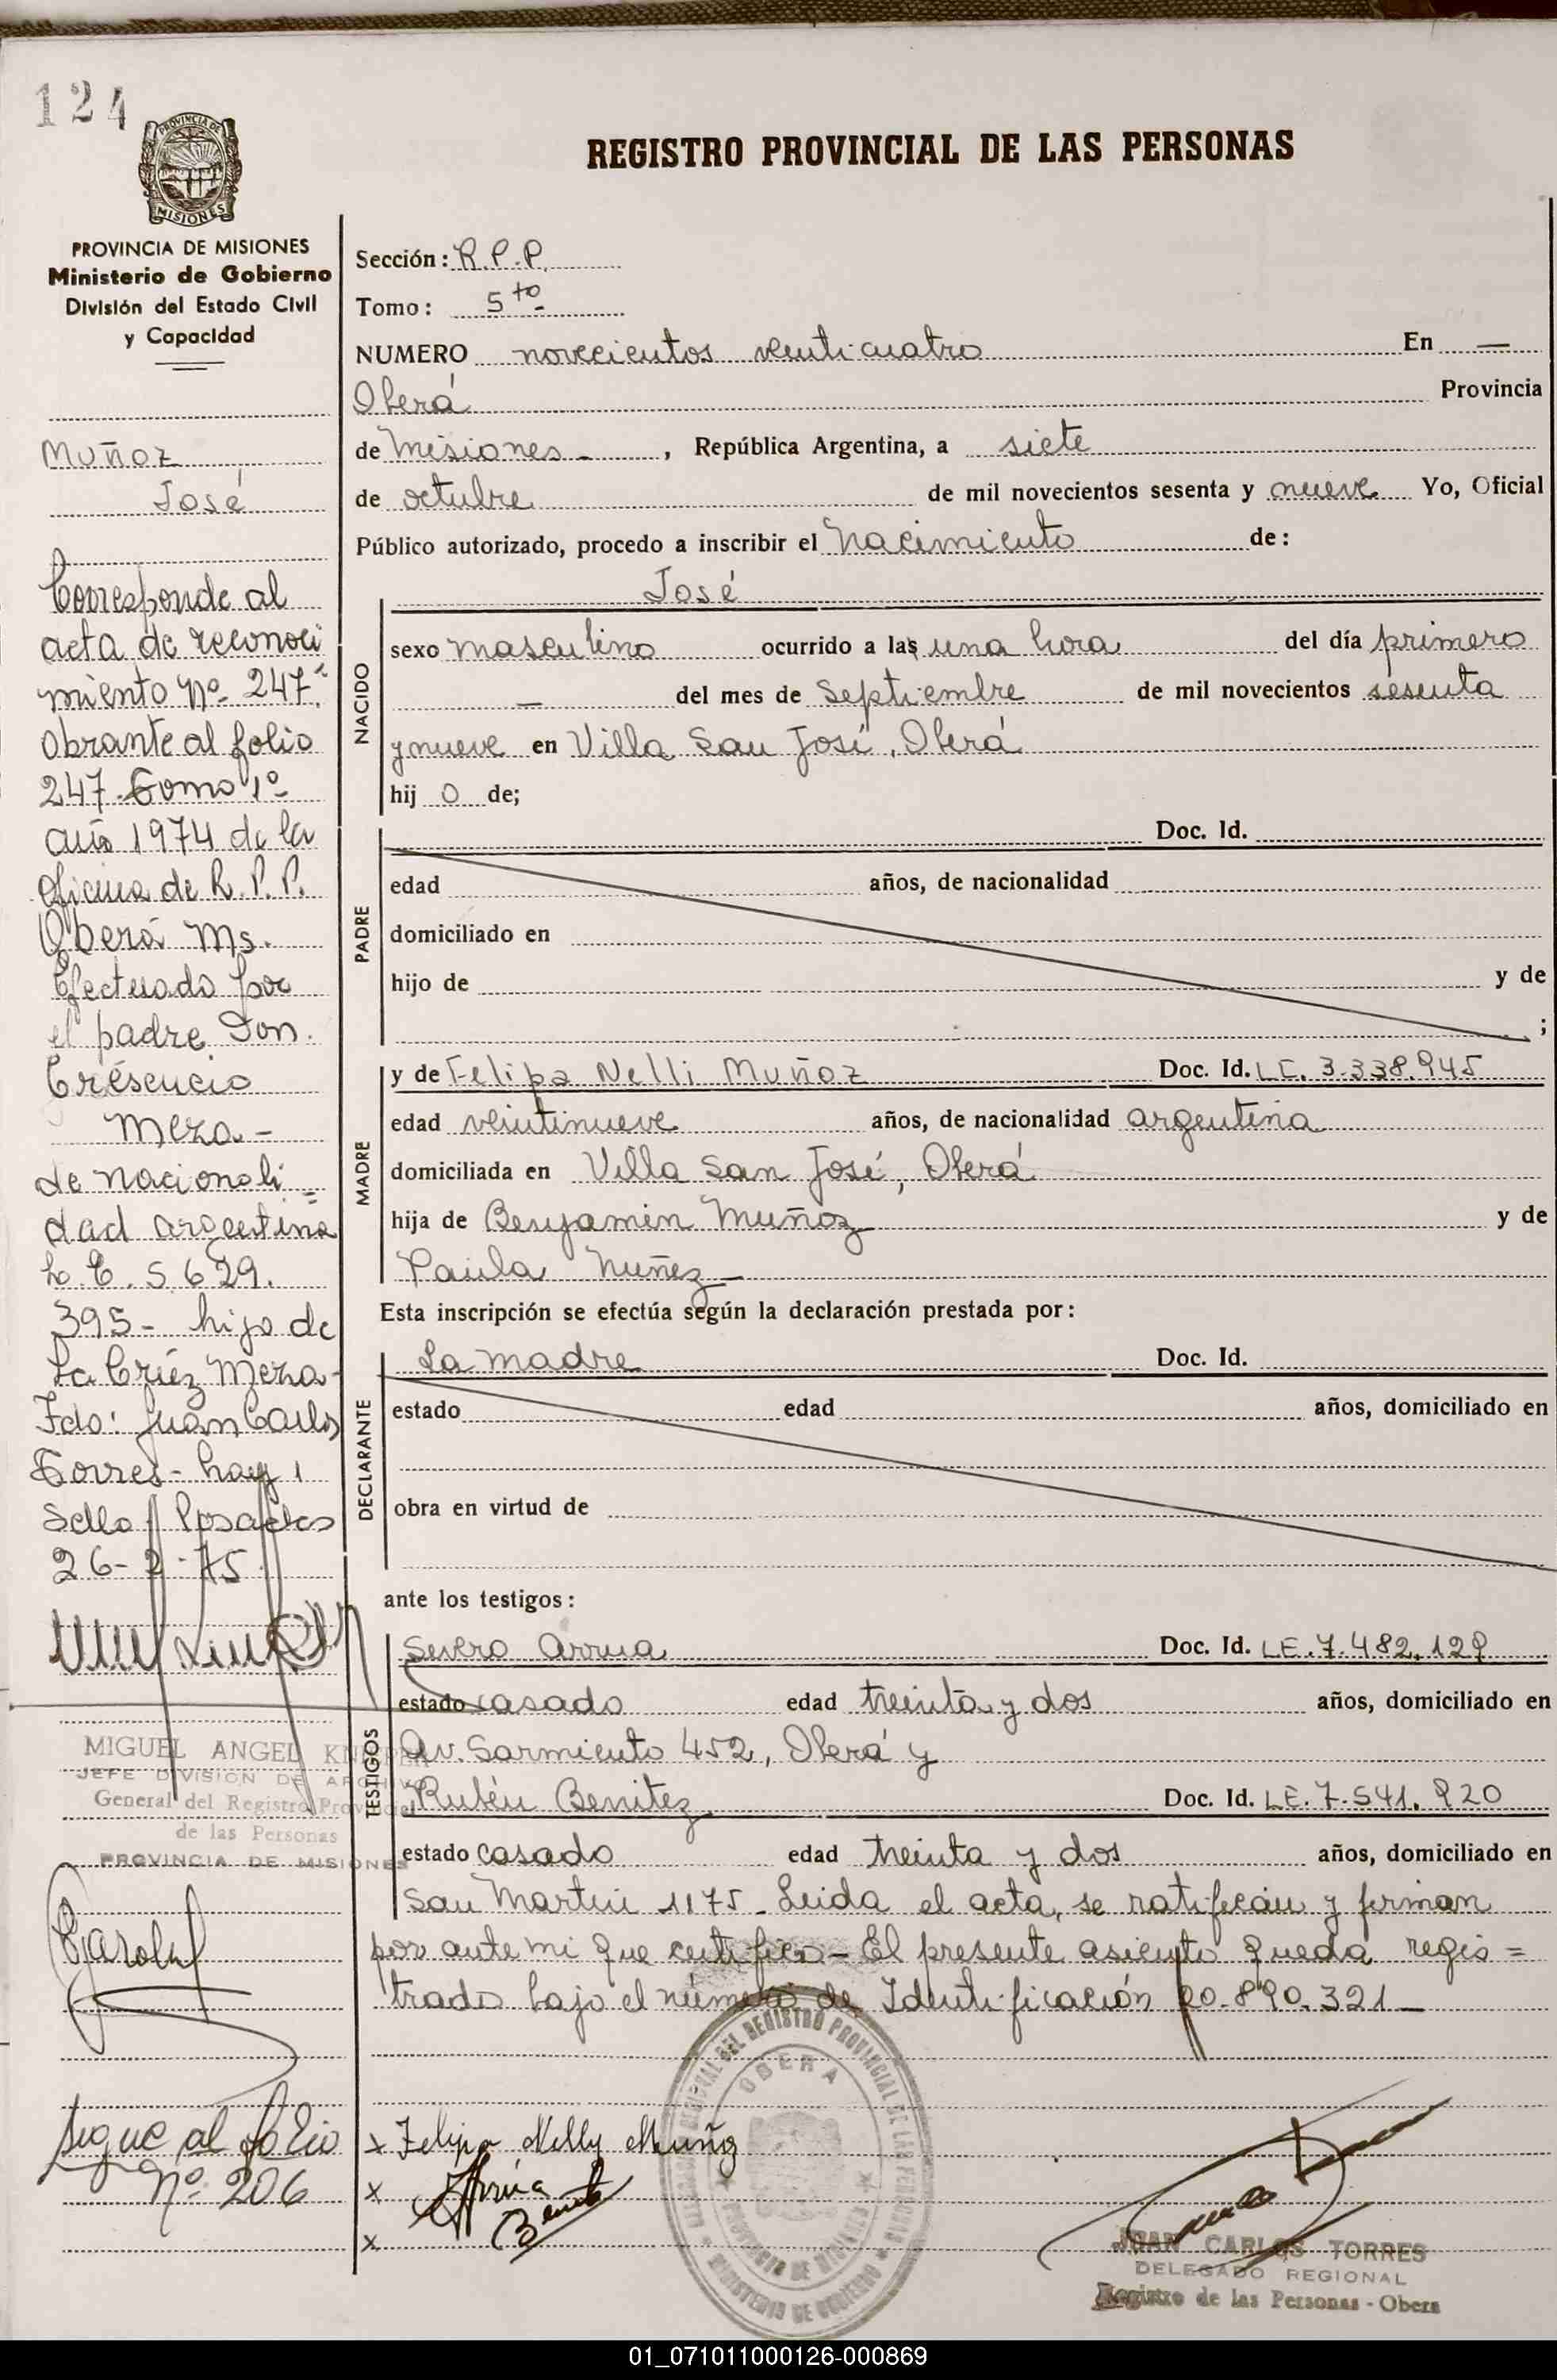 124
PROVINCIA DE
MISIONES
REGISTRO PROVINCIAL DE LAS PERSONAS
PROVINCIA DE MISIONES
Ministerio de Gobierno
División del Estado Civil
y Capacidad
Muñoz
José
Corresponde al
acta de reconoci
miento Nº 247.
Obrante al folio
247. Tomo 1º
año 1974 de la
Oficina de R. P. P.
Oberá Ms.
Efectuado por
el padre Don.
Crésencio
Meza -
de nacionali =
dad argentina
L. E. 5.629.
395 - hijo de
La Crúz Meza -
Fdo: Juan Carlos
Torres - hay 1
Sello Posadas
26-2-75
MIGUEL ANGEL
JEFE DIVISION DE ARCHIVO
General del Registro Provincial
de las Personas
PROVINCIA DE MISIONES
Sigue al folio
Nº 206
Sección: R.P.P.
Tomo: 5to
NUMERO novecientos venticuatro En —
Oberá Provincia
de Misiones - , República Argentina, a siete
de octubre de mil novecientos sesenta y nueve Yo, Oficial
Público autorizado, procedo a inscribir el Nacimiento de:
NACIDO
José
sexo masculino ocurrido a las una hora del día primero
— del mes de Septiembre de mil novecientos sesenta
y nueve en Villa San José, Oberá
hij o de;
PADRE
Doc. Id.
edad años, de nacionalidad
domiciliado en
hijo de y de
;
MADRE
y de Felipa Nelli Muñoz Doc. Id. LC. 3.338.945
edad veintinueve años, de nacionalidad argentina
domiciliada en Villa San José, Oberá
hija de Benjamin Muñoz y de
Paula Nuñez -
Esta inscripción se efectúa según la declaración prestada por:
DECLARANTE
La madre Doc. Id.
estado edad años, domiciliado en
obra en virtud de
ante los testigos:
TESTIGOS
Severo Arrua Doc. Id. LE. 7.482.129
estado casado edad treinta y dos años, domiciliado en
Av. Sarmiento 452, Oberá y
Rubén Benitez Doc. Id. LE. 7.541.920
estado casado edad treinta y dos años, domiciliado en
San Martin 1175 - Leida el acta, se ratifican y firman
por ante mi que certifico - El presente asiento queda regis =
trado bajo el número de Identificación 20.890.321 -
x Felipa Nelly Muñoz
x Arrúa
x Benitez
OBERA
JUAN CARLOS TORRES
DELEGADO REGIONAL
Registro de las Personas - Obera
01_071011000126-000869